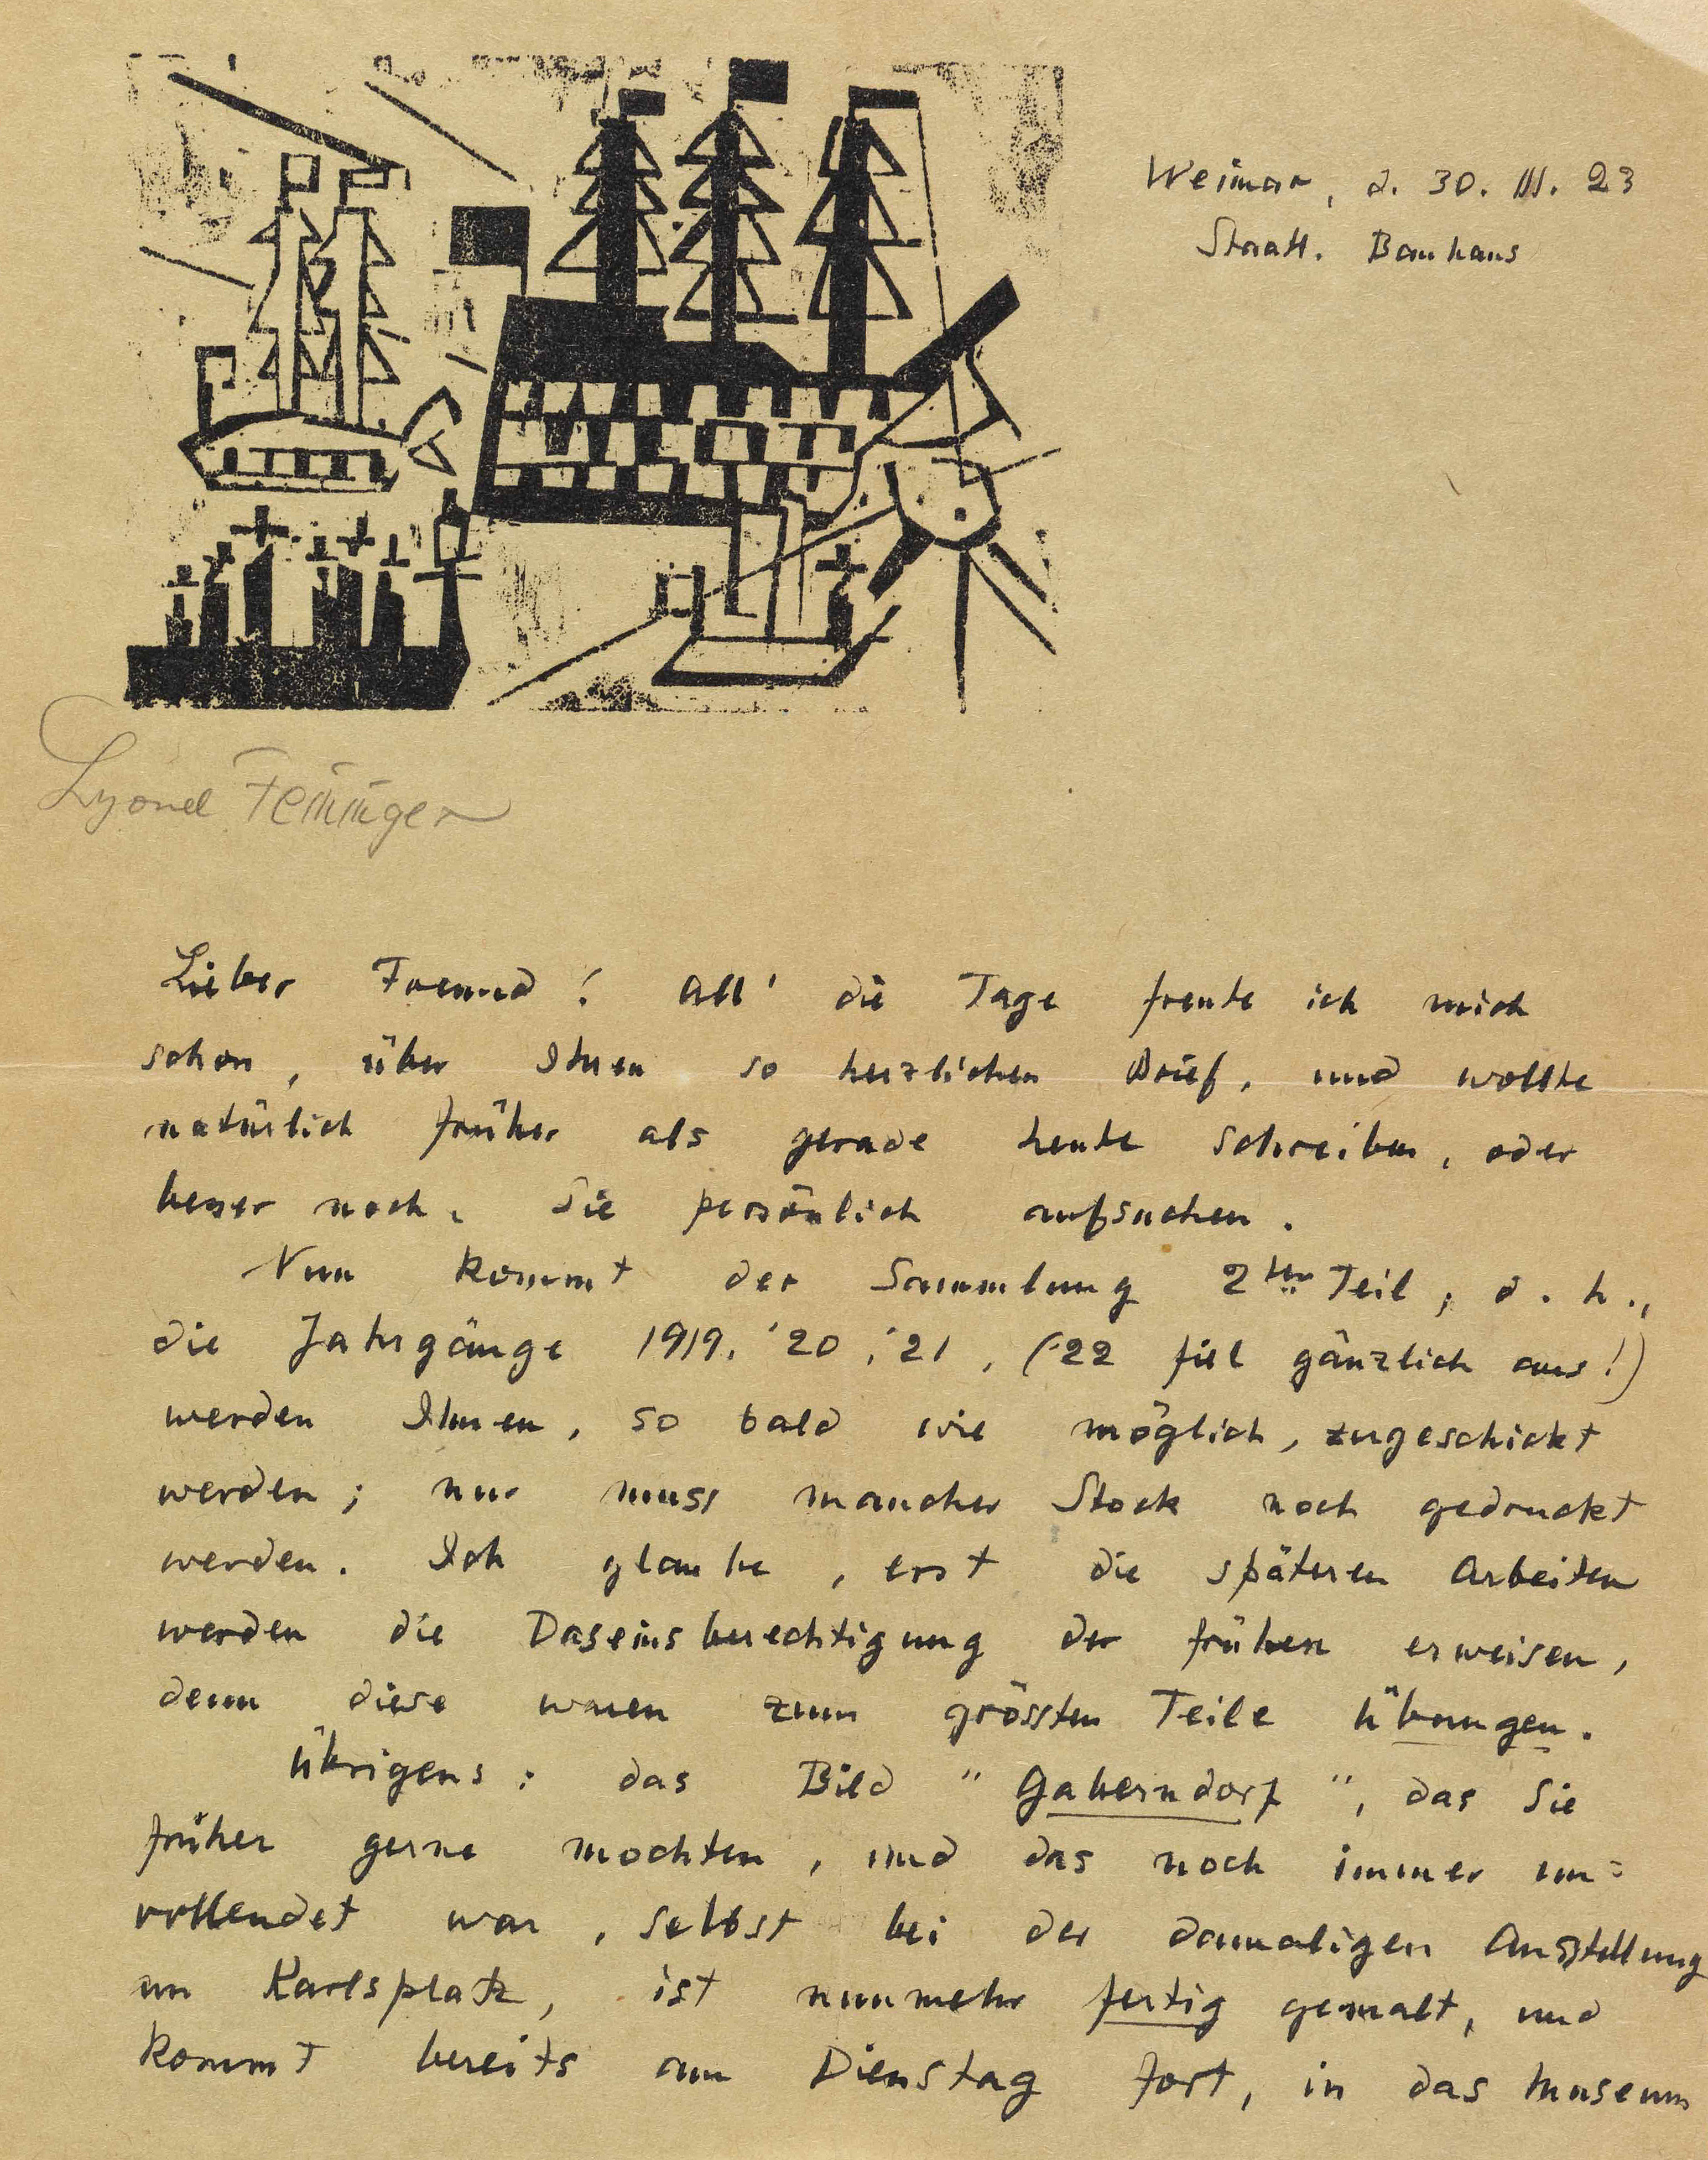 Weimar, d. 30. III. 23
Staatl. Bauhaus
Lyonel Feininger
Lieber Freund! All' die Tage freute ich mich
schon, über Ihren so herzlichen Brief, und wollte
natürlich früher als gerade heute schreiben, oder
besser noch, Sie persönlich aufsuchen.
Nun kommt der Sammlung 2ter Teil, d. h.,
die Jahrgänge 1919, '20, '21, ('22 fiel gänzlich aus!)
werden Ihnen, so bald wie möglich, zugeschickt
werden; nur muss mancher Stock noch gedruckt
werden. Ich glaube, erst die späteren Arbeiten
werden die Daseinsberechtigung der frühen erweisen,
denn diese waren zum grössten Teile Übungen.
Übrigens: das Bild "Gaberndorf", das Sie
früher gerne mochten, und das noch immer un=
vollendet war, selbst bei der damaligen Ausstellung
am Karlsplatz, ist nunmehr fertig gemalt, und
kommt bereits am Dienstag fort, in das Museum